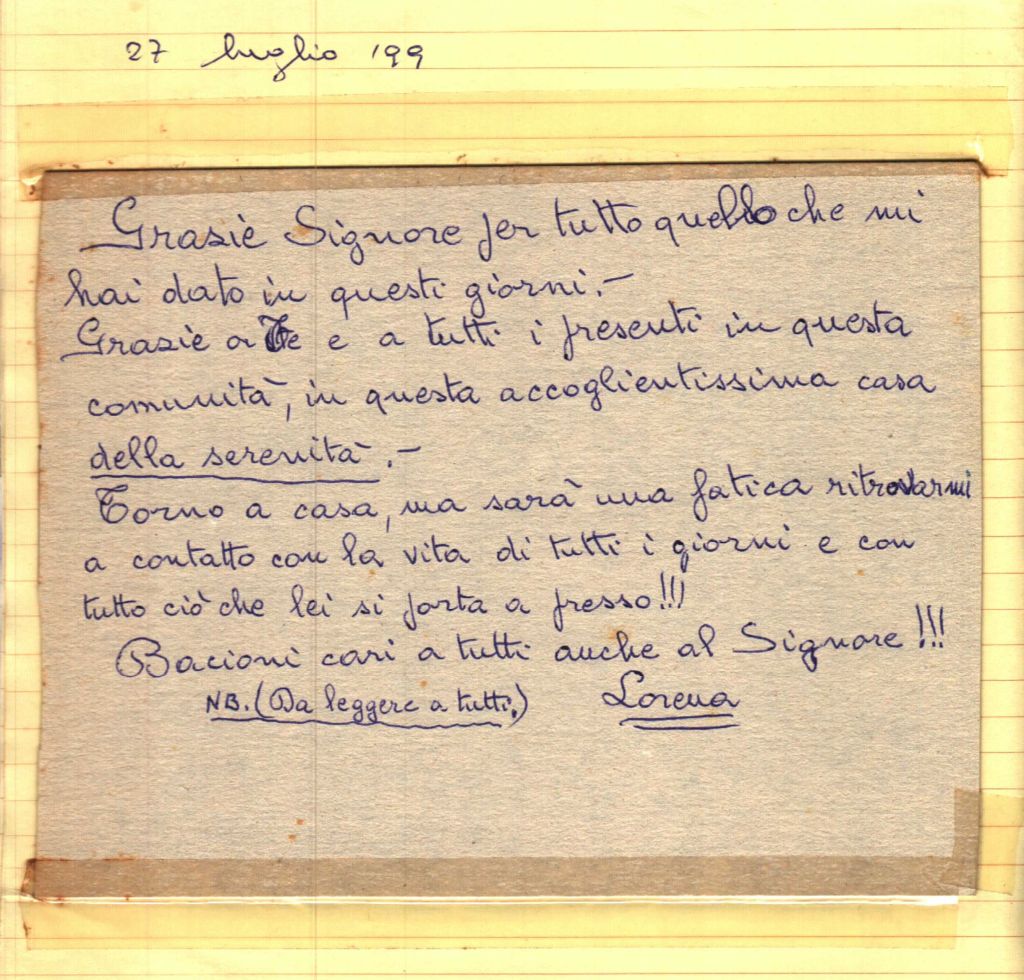 27 luglio 199
Grazie Signore per tutto quello che mi
hai dato in questi giorni.-
Grazie a Te e a tutti i presenti in questa
comunità, in questa accoglientissima casa
della serenità.-
Torno a casa, ma sarà una fatica ritrovarmi
a contatto con la vita di tutti i giorni e con
tutto ciò che lei si porta a presso!!!
Bacioni cari a tutti anche al Signore!!!
NB. (Da leggere a tutti.) Lorena